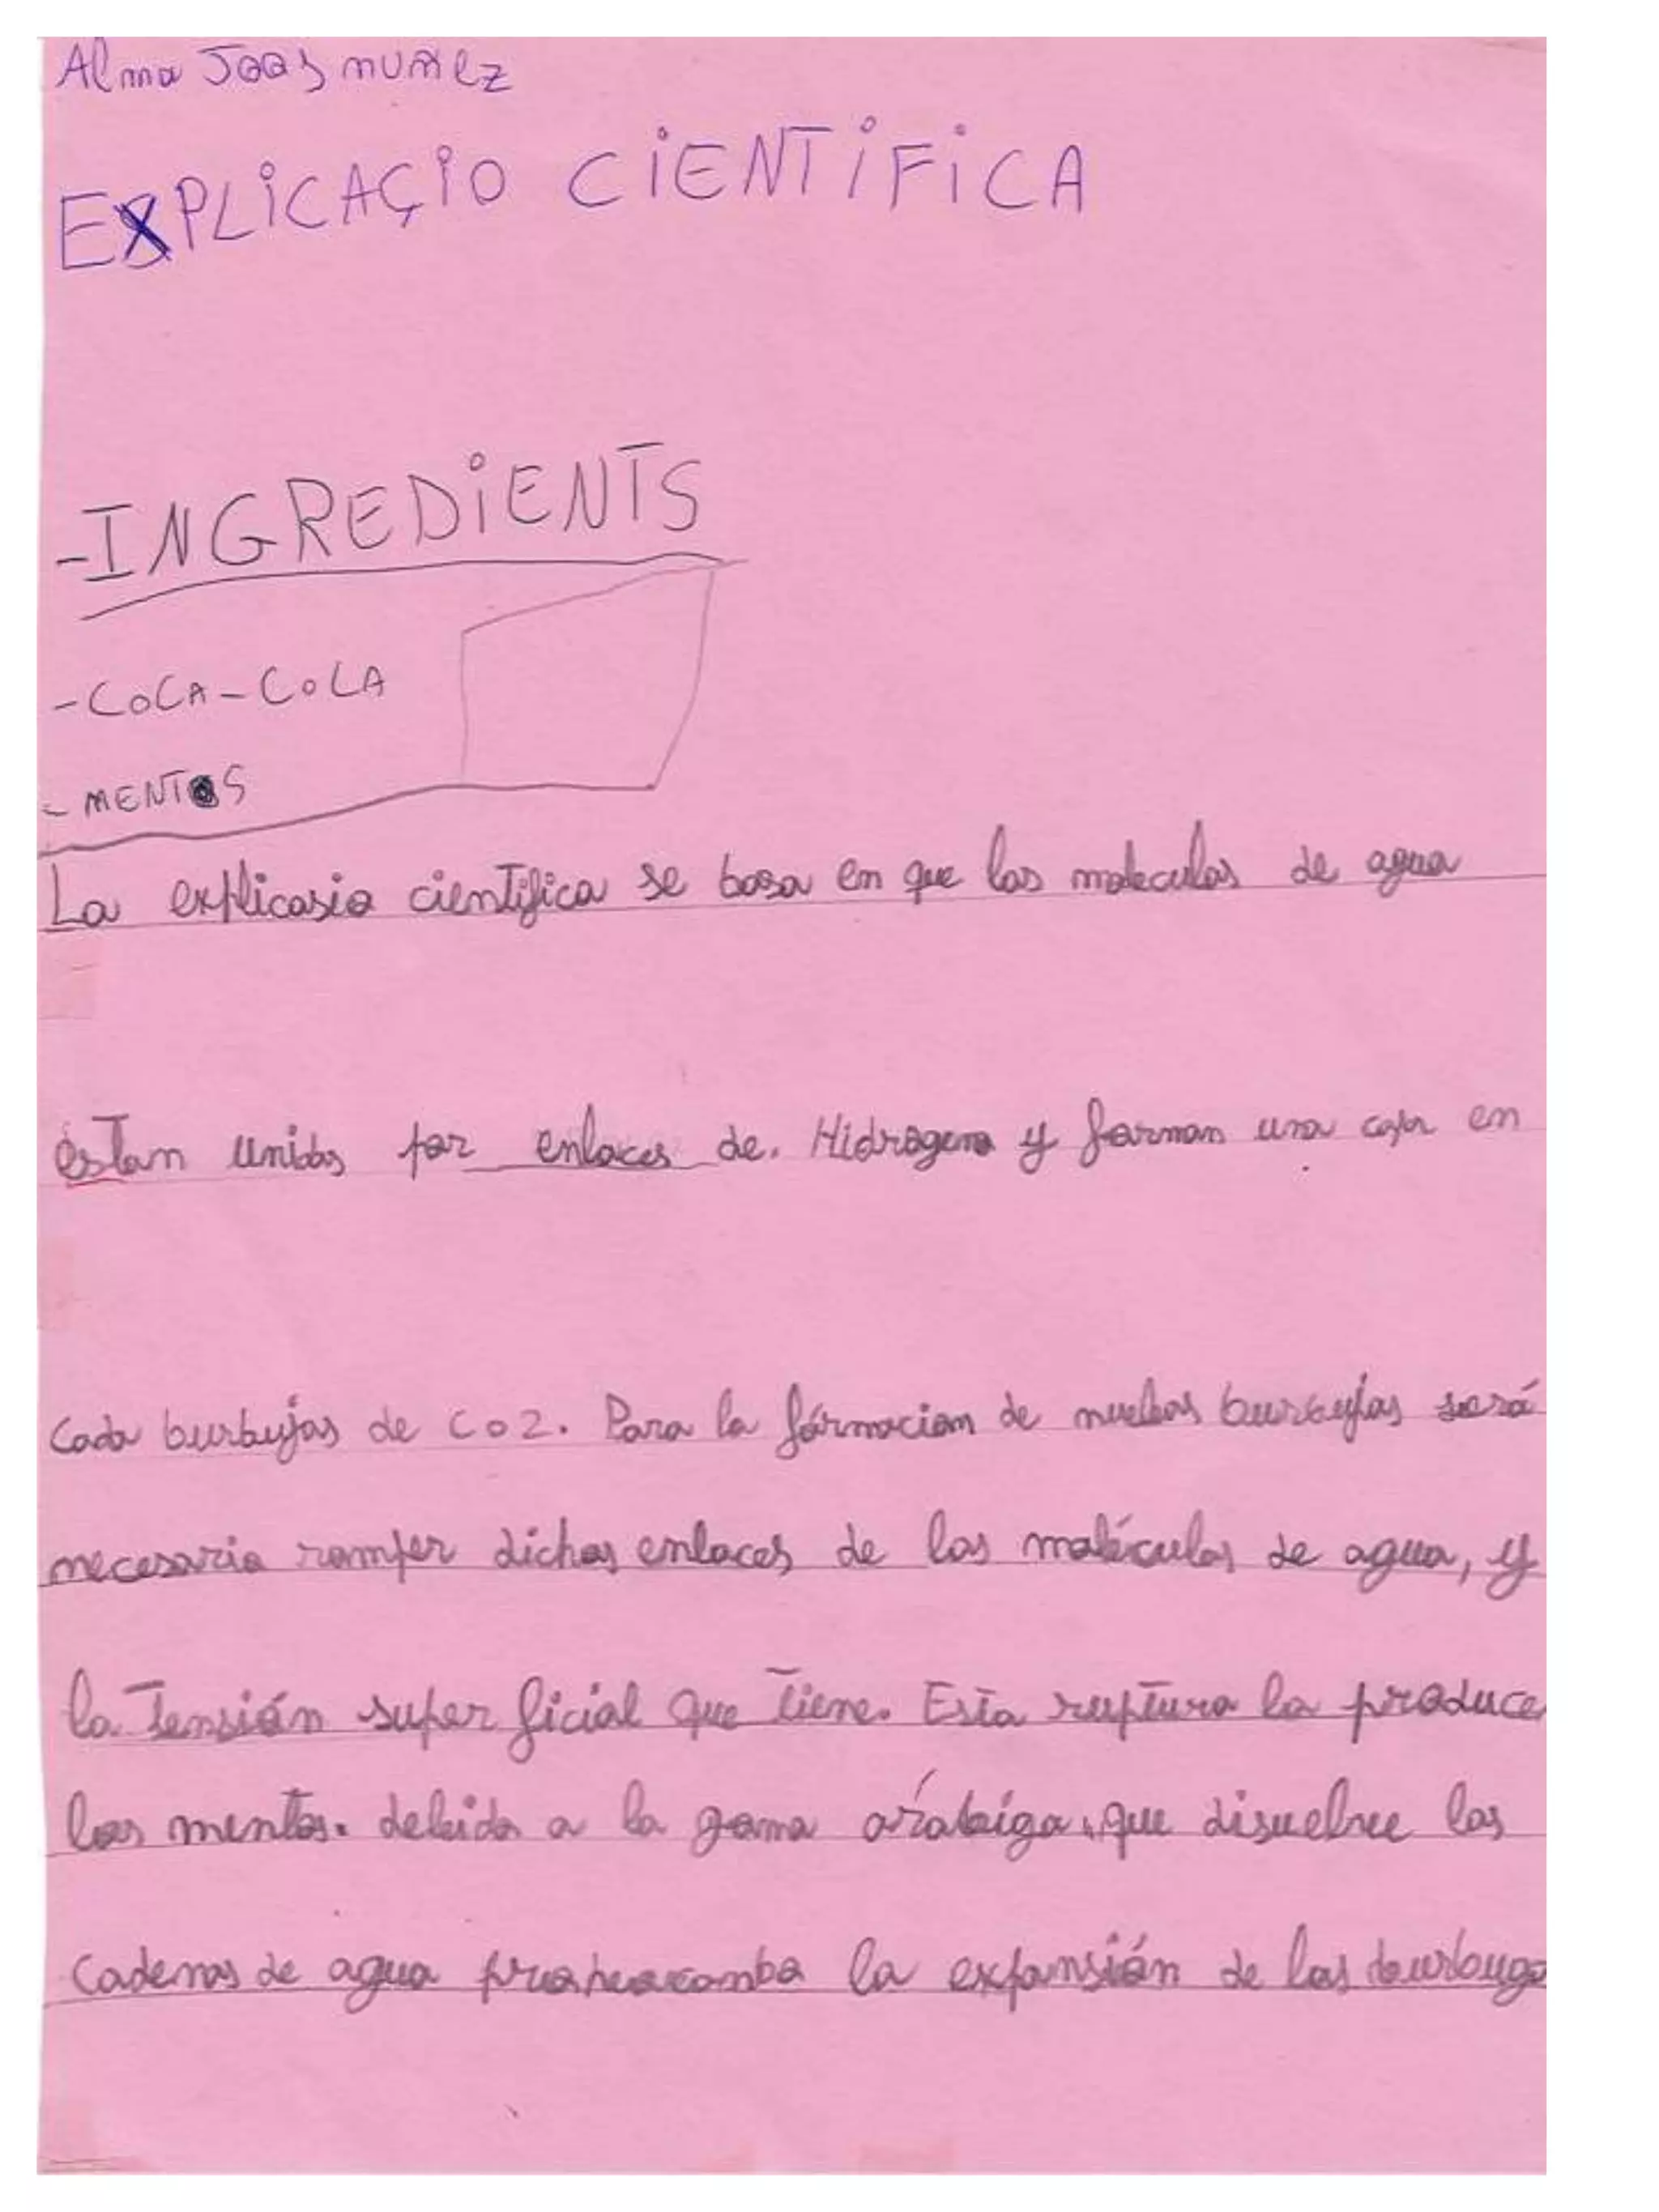 Alma Joas muñez
EXPLICAÇIO CIENTIFICA
-INGREDIENTS
-COCA-COLA
- MENTOS
La explicasio cientifica se basa en que las moleculas de agua
estan unidas por enlaces de. Hidrogeno y forman una capa en
cada burbujas de CO2. Para la fórmacion de nuebas burbujas será
necesario romper dichos enlaces de las moléculas de agua, y
la Tensión super ficial que tiene. Esta ruptura la produce
los mentos. debido a la goma arábiga, que disuelve las
cadenas de agua la expansión de las